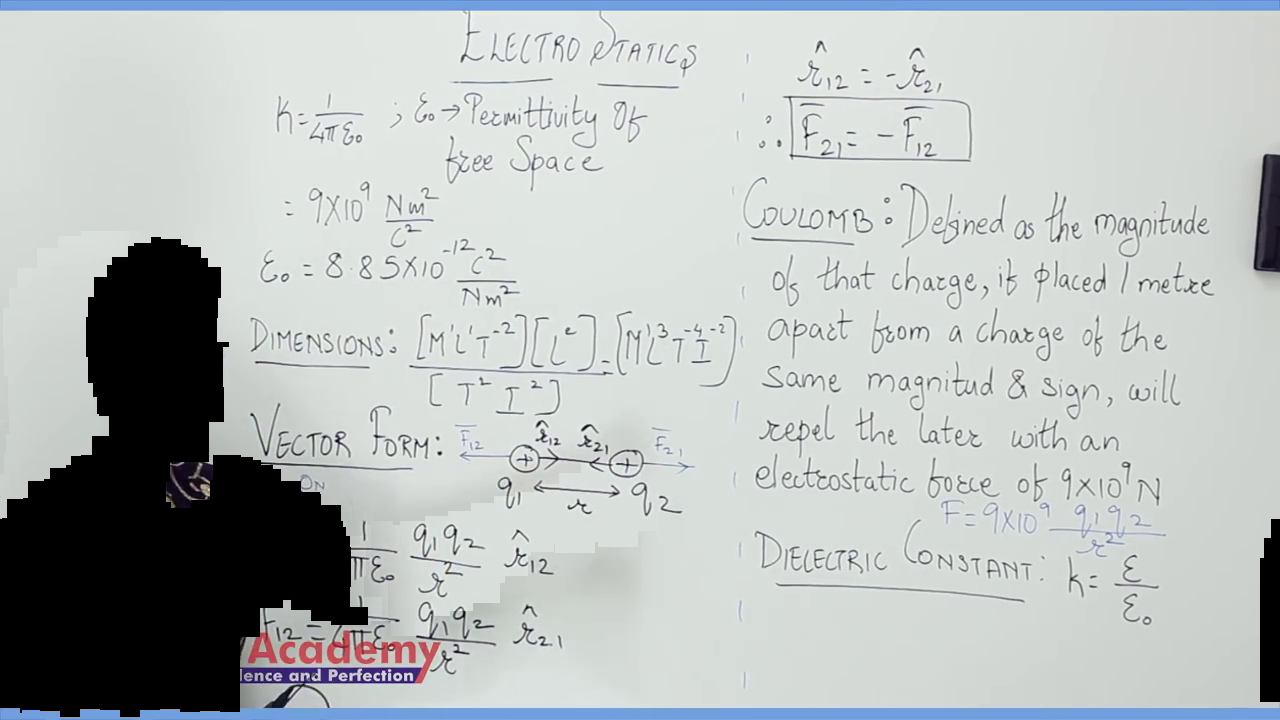 ELECTROSTATICS
K = 1/4πε₀ ; ε₀ → Permittivity Of
free Space
= 9X10⁹ Nm²/C²
ε₀ = 8.85X10⁻¹² C²/Nm²
DIMENSIONS: [M¹L¹T⁻²][L²]/[T² I²] = [M¹L³T⁻⁴I⁻²]
VECTOR FORM:
F̅₁₂ r̂₁₂ r̂₂₁ F̅₂₁
+ +
q₁ r q₂
ON
1/πε₀ q₁q₂/r² r̂₁₂
F₁₂ = 1/4πε₀ q₁q₂/r² r̂₂₁
r̂₁₂ = -r̂₂₁
∴ F̅₂₁ = - F̅₁₂
COULOMB: Defined as the magnitude
of that charge, if placed 1 metre
apart from a charge of the
same magnitud & sign, will
repel the later with an
electrostatic force of 9X10⁹N
F = 9X10⁹ q₁q₂/r²
DIELECTRIC CONSTANT: K = ε/ε₀
Academy
lence and Perfection